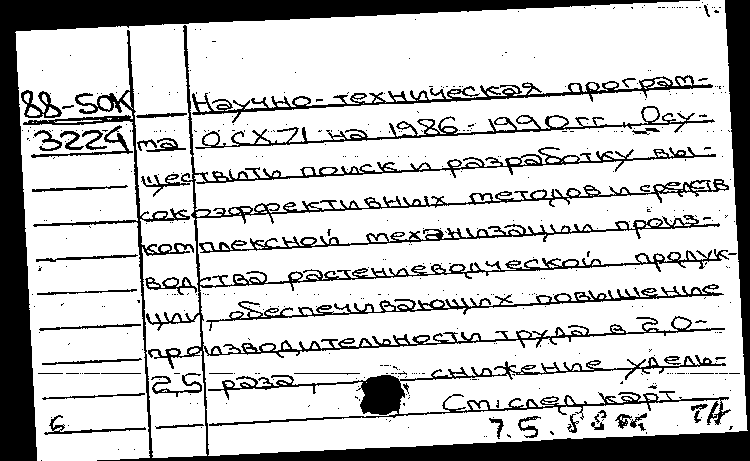 88-50К Научно-техническая програм-
3224 ма О.СХ.71 на 1986-1990 гг. "Осу-
ществить поиск и разработку вы-
сокоэффективных методов и средств
комплексной механизации произ-
водства растениеводческой продук-
ции, обеспечивающих повышение
производительности труда в 2,0-
2,5 раза, снижение удель-
См. след. карт.
6 7.5. 88